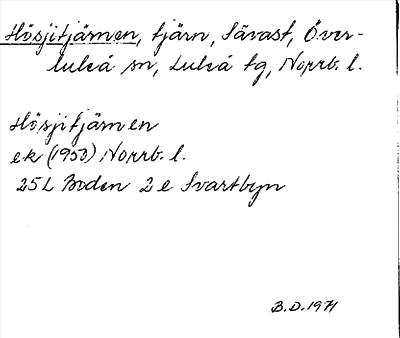 Hösjitjärnen, tjärn, Sävast, Över-
luleå sn, Luleå tg, Norrb. l.
Hösjitjärnen
ek (1953) Norrb. l.
25L Boden 2 e Svartbyn
B.D. 1971